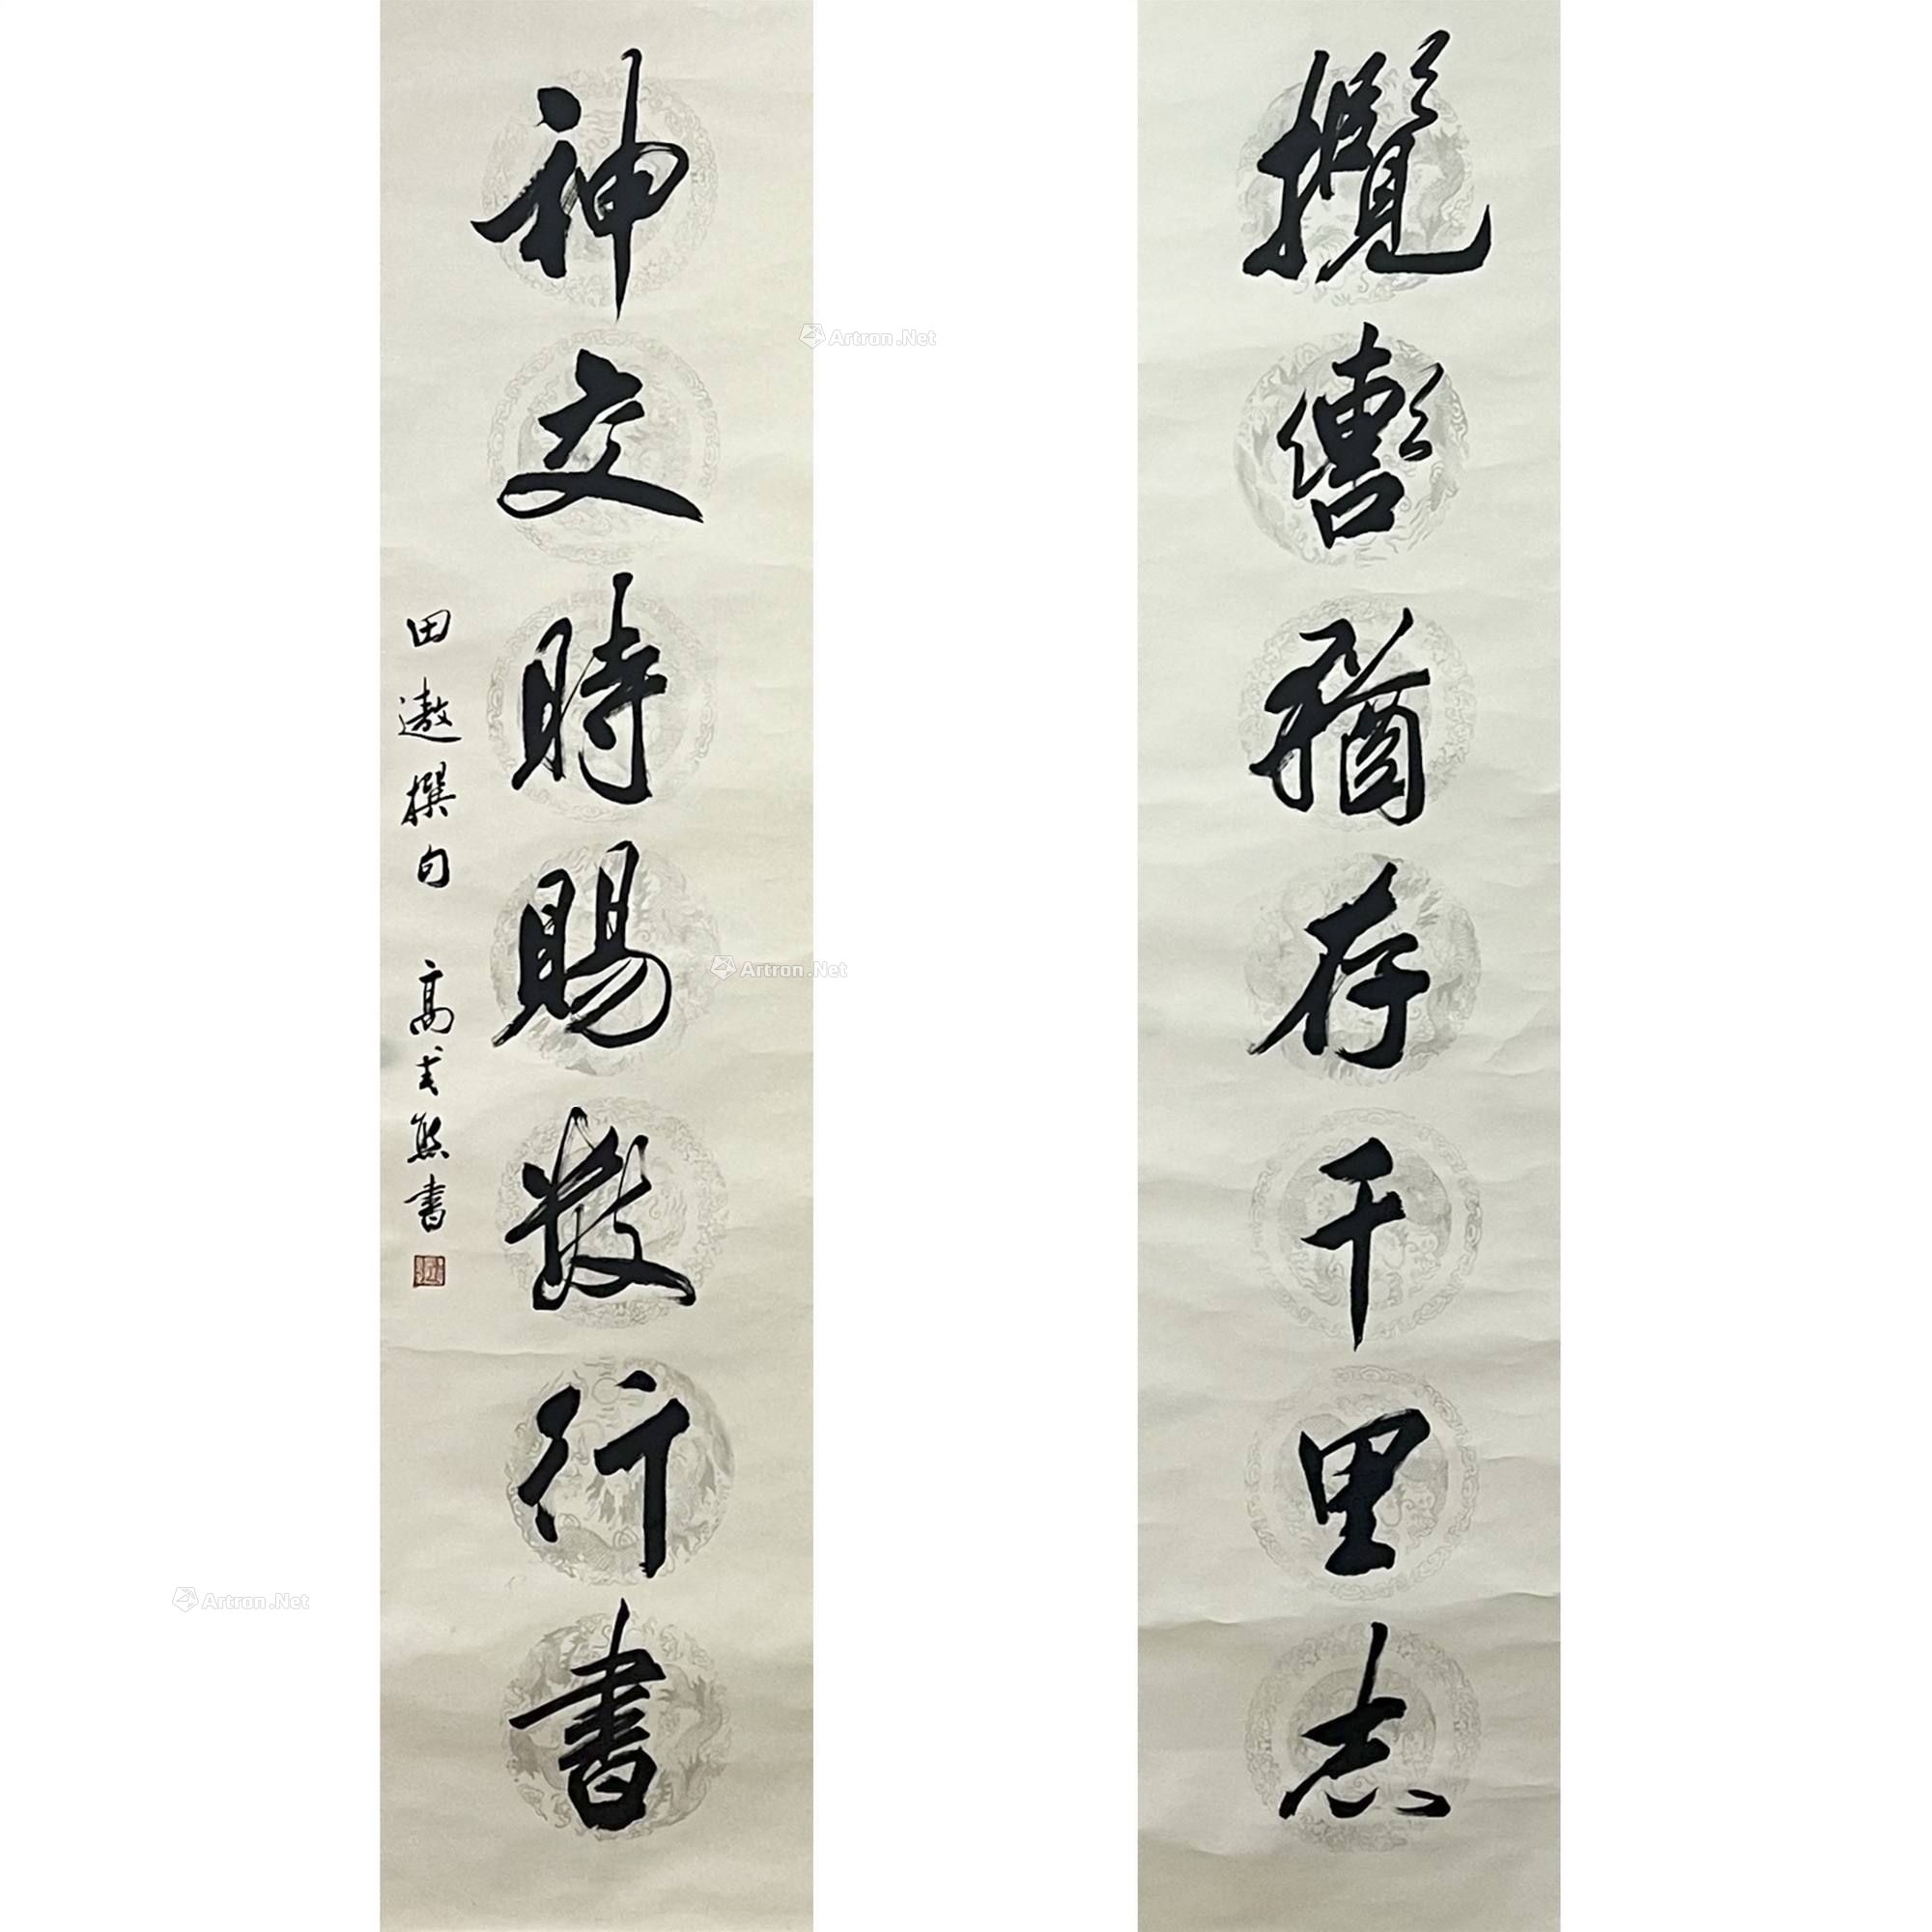 攬轡猶存千里志
神交時賜數行書
田遨撰句 高式熊書
Artron.Net
Artron.Net
Artron.Net